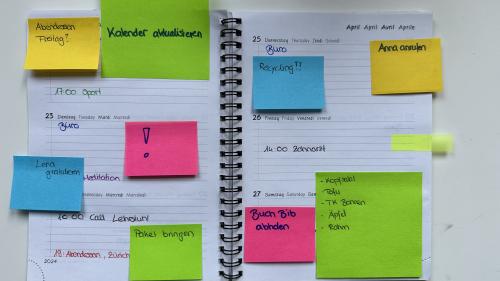 Abendessen
Freitag?
Kalender aktualisieren
17:00 Sport
23 Dienstag Tuesday Mardi Martedì
Büro
!
Meditation
Lena
gratulieren
Wednesday Mercredi Mercoledì
10:00 Call
Paket bringen
19: Abendessen, Zürich
2024
April April Avril Aprile
25 Donnerstag Thursday Jeudi Giovedì
Büro
Recycling?!
Anna anrufen
26 Freitag Friday Vendredi Venerdì
14:00 Zahnarzt
27 Samstag Saturday
Buch Bib
abholen
- Kopfsalat
- Tofu
- TK Beeren
- Äpfel
- Rahm